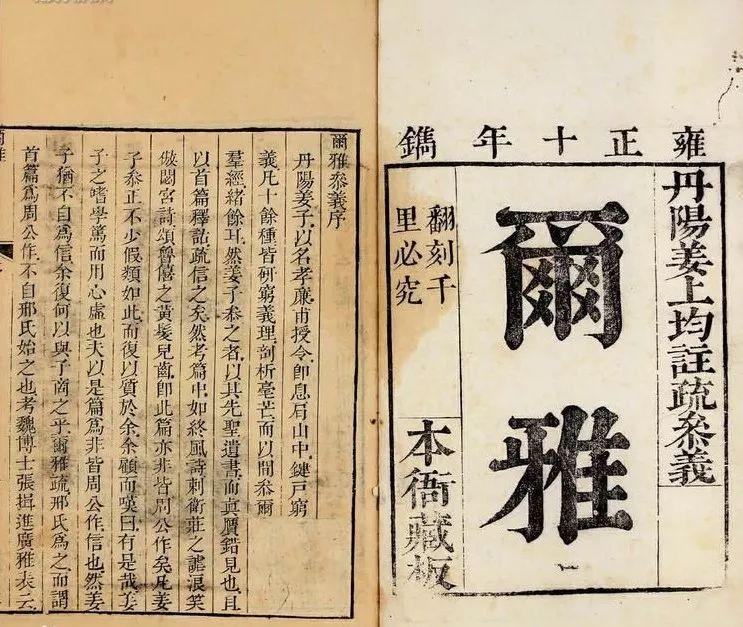 雍正十年鐫
丹陽姜上均註疏叅義
爾雅
翻刻千
里必究
本衙藏板
爾雅叅義序
丹陽姜子以名孝廉甫授令即息肩山中鍵戸窮
義凡十餘種皆研窮義理剖析毫芒而以間叅爾
羣經緒餘耳然姜子叅之者以其先聖遺書而真贋錯見也且
以首篇釋詁疏信之矣然考篇中如終風詩刺衛莊之謔浪笑
傲閟宮詩頌魯僖之黃髮兒齒即此篇亦非皆周公作矣凡姜
子叅正不少假類如此而復以質於余余顧而嘆曰有是哉姜
子之嗜學篤而用心虛也夫以是篇爲非皆周公作信也然姜
子猶不自爲信余復何以與子商之乎爾雅疏邢氏爲之而謂
首篇爲周公作不自邢氏始之也考魏博士張揖進廣雅表云